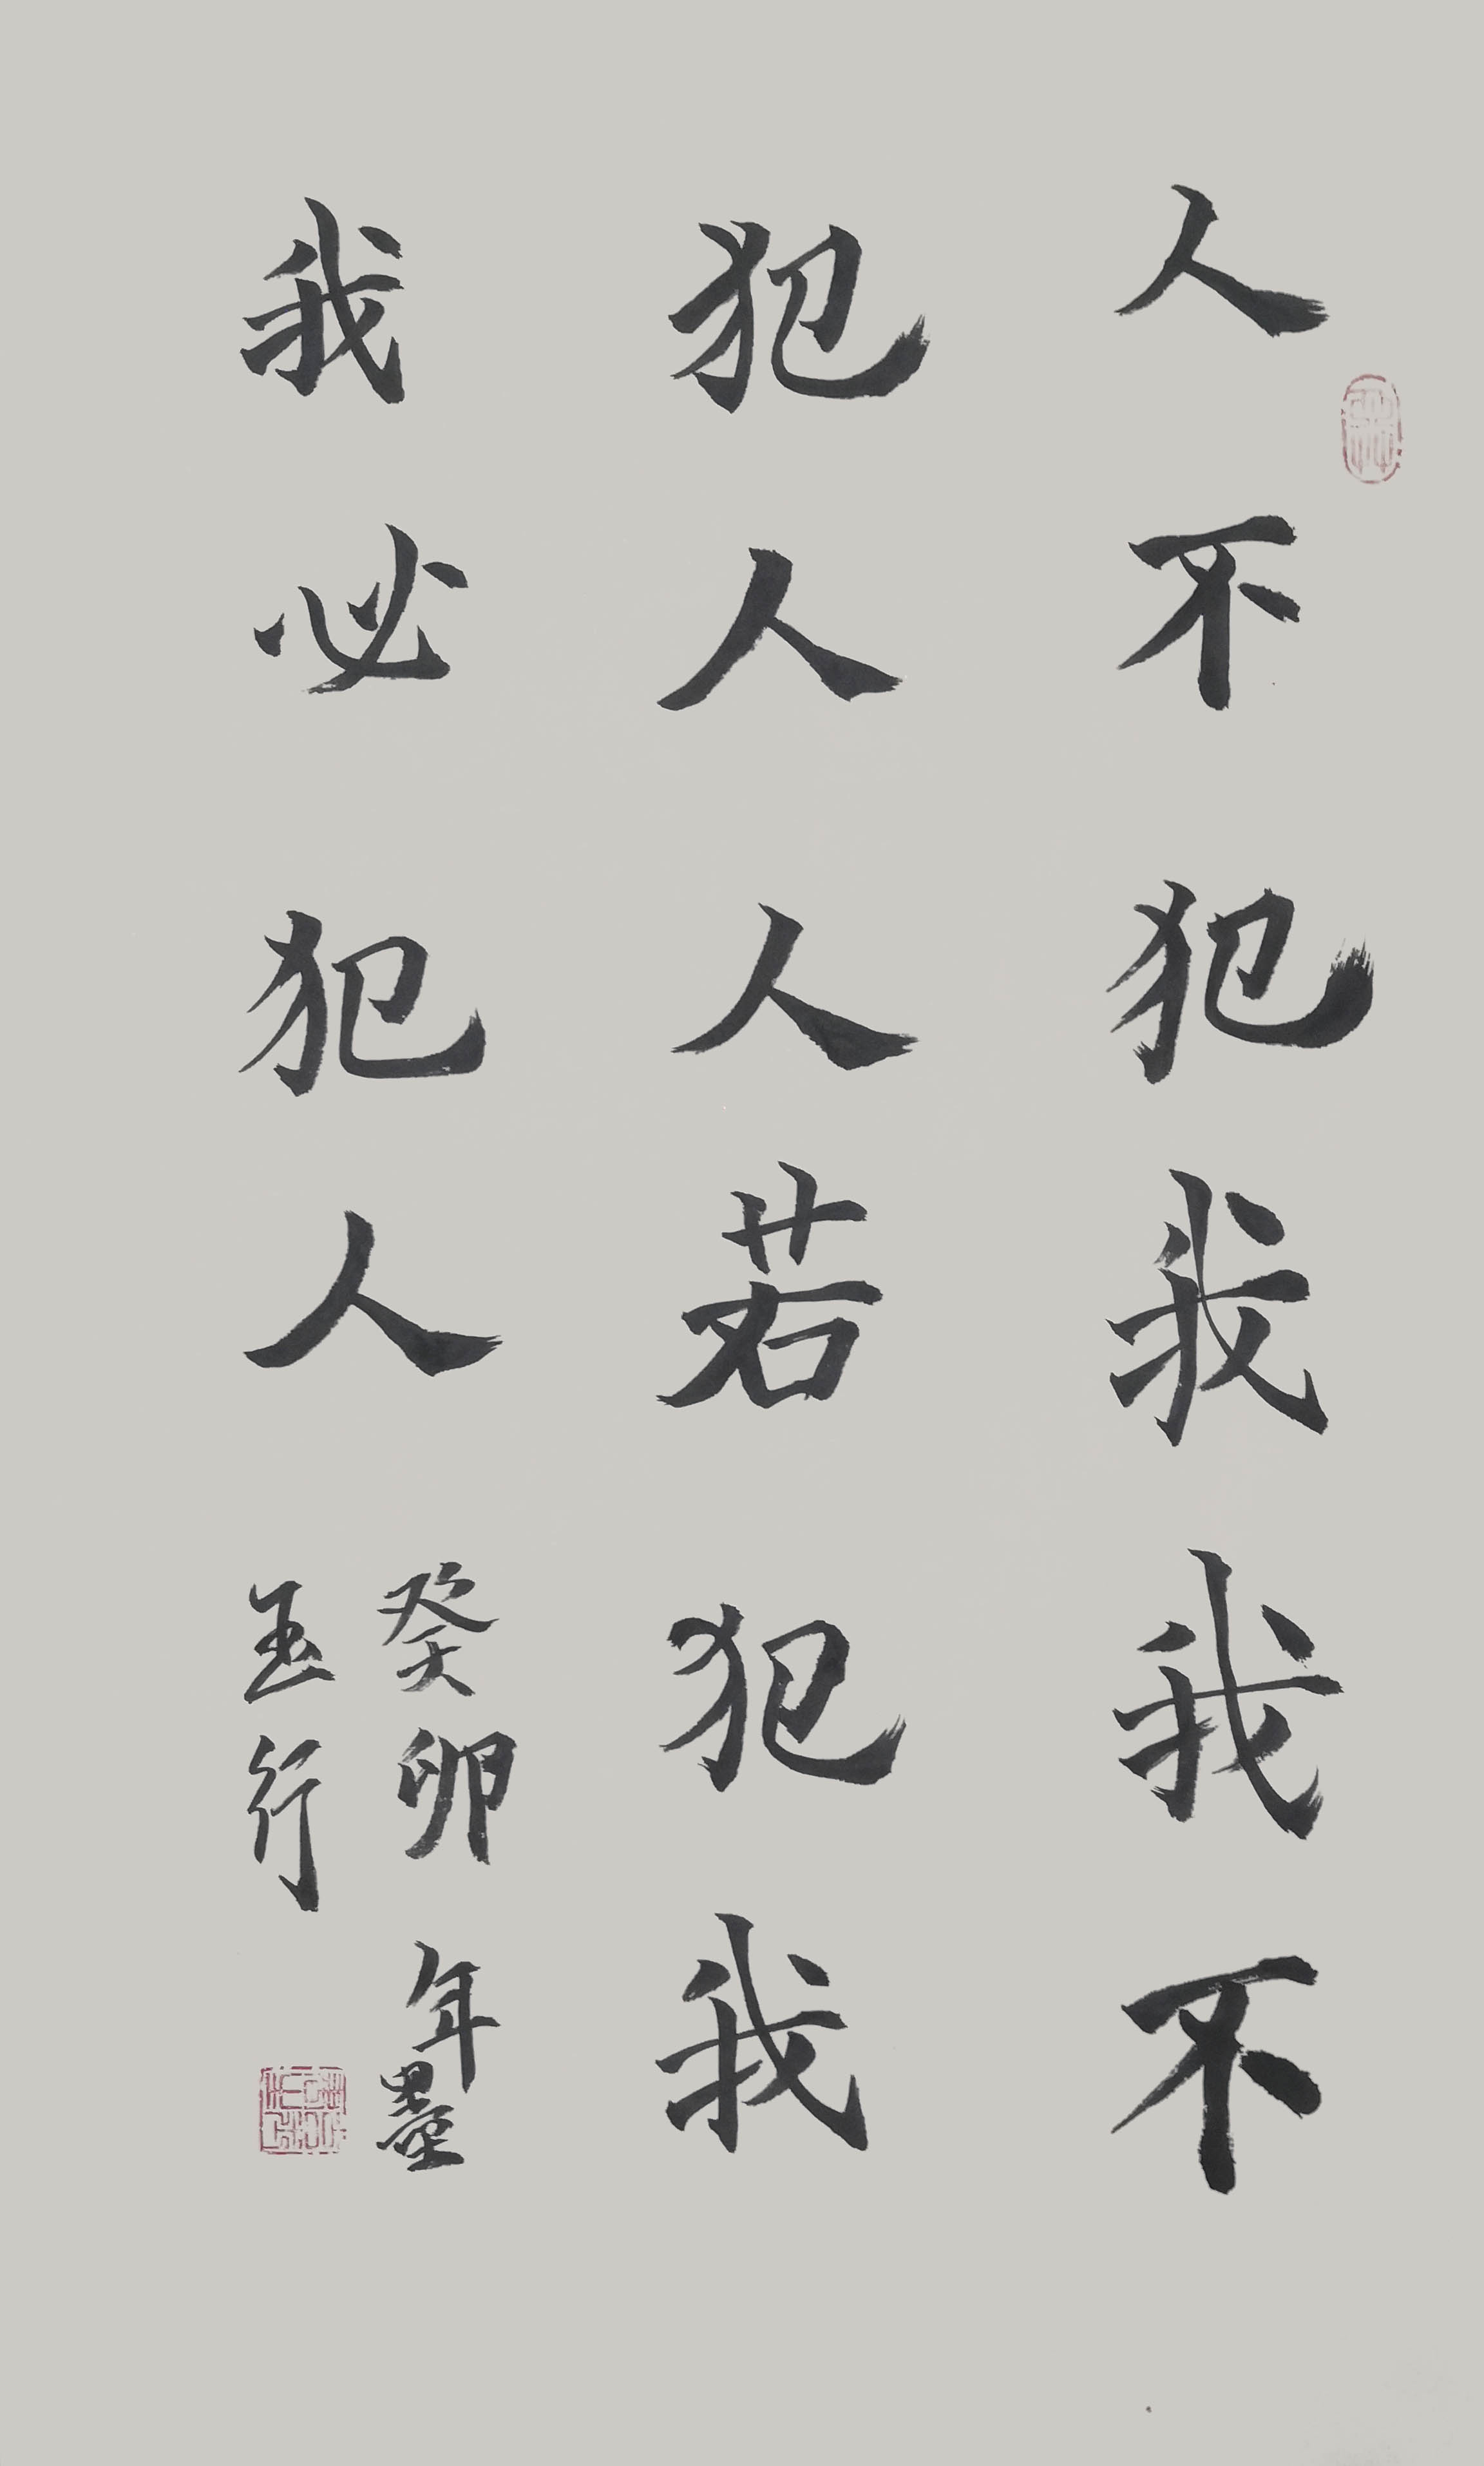 人不犯我我不
犯人人若犯我
我必犯人
癸卯年墨
玉行